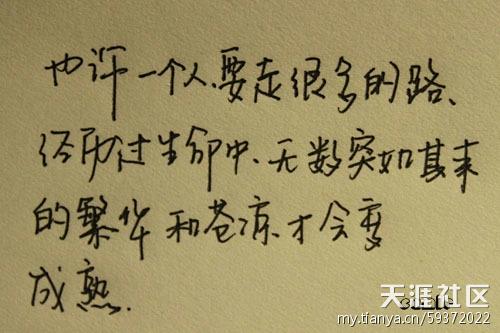 也许一个人、要走很多的路、
经历过生命中、无数突如其来
的繁华和苍凉.才会变
成熟.
天涯社区
my.tianya.cn/59372022